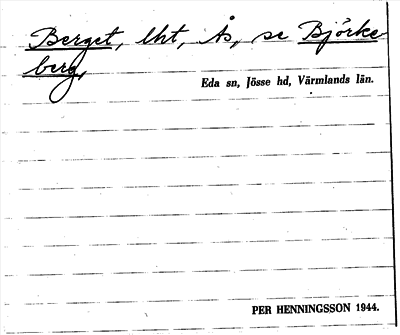 Berget, lht, Ås, se Björke
berg,
Eda sn, Jösse hd, Värmlands län.
PER HENNINGSSON 1944.